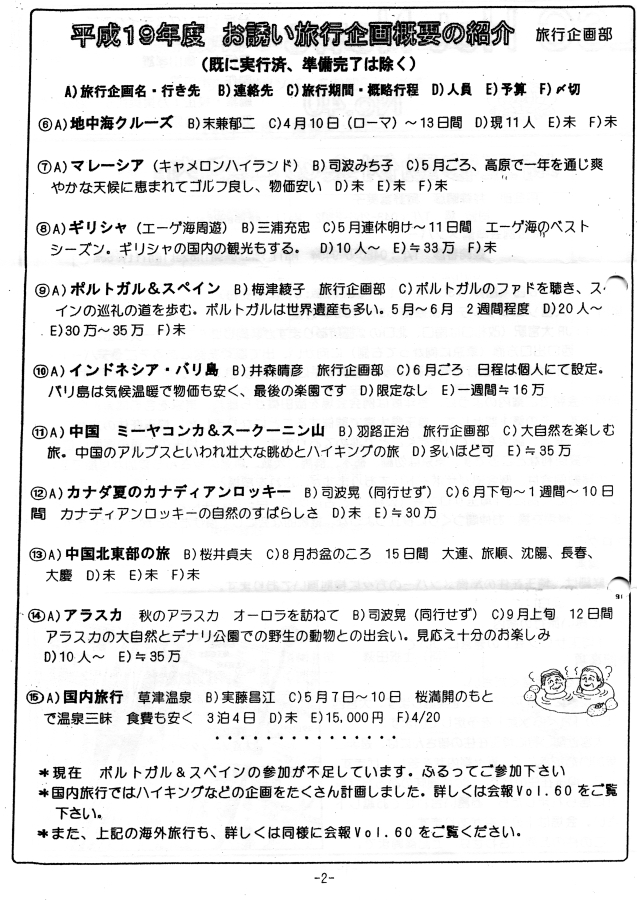 平成19年度 お誘い旅行企画概要の紹介 旅行企画部
(既に実行済、準備完了は除く)
A)旅行企画名・行き先 B)連絡先 C)旅行期間・概略行程 D)人員 E)予算 F)〆切
⑥A)地中海クルーズ B)末兼郁二 C)4月10日(ローマ)～13日間 D)現11人 E)未 F)未
⑦A)マレーシア(キャメロンハイランド) B)司波みち子 C)5月ごろ、高原で一年を通じ爽
やかな天候に恵まれてゴルフ良し、物価安い D)未 E)未 F)未
⑧A)ギリシャ(エーゲ海周遊) B)三浦充忠 C)5月連休明け～11日間 エーゲ海のベスト
シーズン。ギリシャの国内の観光もする。 D)10人～ E)≒33万 F)未
⑨A)ポルトガル&スペイン B)梅津綾子 旅行企画部 C)ポルトガルのファドを聴き、スペ
インの巡礼の道を歩む。ポルトガルは世界遺産も多い。5月～6月 2週間程度 D)20人～
E)30万～35万 F)未
⑩A)インドネシア・バリ島 B)井森晴彦 旅行企画部 C)6月ごろ 日程は個人にて設定。
バリ島は気候温暖で物価も安く、最後の楽園です D)限定なし E)一週間≒16万
⑪A)中国 ミーヤコンカ&スークーニン山 B)羽路正治 旅行企画部 C)大自然を楽しむ
旅。中国のアルプスといわれ壮大な眺めとハイキングの旅 D)多いほど可 E)≒35万
⑫A)カナダ夏のカナディアンロッキー B)司波晃(同行せず) C)6月下旬～1週間～10日
間 カナディアンロッキーの自然のすばらしさ D)未 E)≒30万
⑬A)中国北東部の旅 B)桜井貞夫 C)8月お盆のころ 15日間 大連、旅順、沈陽、長春、
大慶 D)未 E)未 F)未
⑭A)アラスカ 秋のアラスカ オーロラを訪ねて B)司波晃(同行せず) C)9月上旬 12日間
アラスカの大自然とデナリ公園での野生の動物との出会い。見応え十分のお楽しみ
D)10人～ E)≒35万
⑮A)国内旅行 草津温泉 B)実藤昌江 C)5月7日～10日 桜満開のもと
で温泉三昧 食費も安く 3泊4日 D)未 E)15,000円 F)4/20
・・・・・・・・・・・・・・・
*現在 ポルトガル&スペインの参加が不足しています。ふるってご参加下さい
*国内旅行ではハイキングなどの企画をたくさん計画しました。詳しくは会報Vol.60をご覧
下さい。
*また、上記の海外旅行も、詳しくは同様に会報Vol.60をご覧ください。
-2-